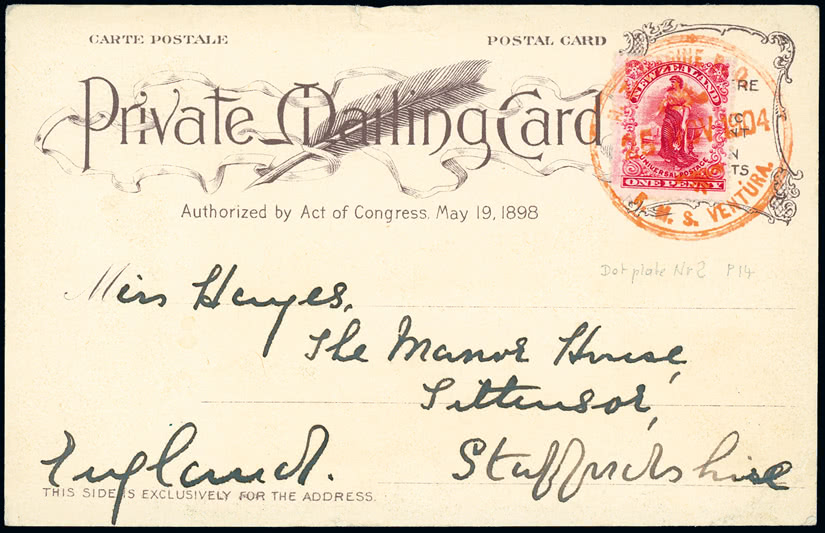 CARTE POSTALE
POSTAL CARD
Private Mailing Card
Authorized by Act of Congress. May 19, 1898
NEW ZEALAND
UNIVERSAL POSTAGE
ONE PENNY
RE
TS
25 1904
R. M. S. VENTURA.
Dot plate Nr 2 P14
Miss Hayes,
The Manor House,
Tittensor,
Staffordshire
England.
THIS SIDE IS EXCLUSIVELY FOR THE ADDRESS.